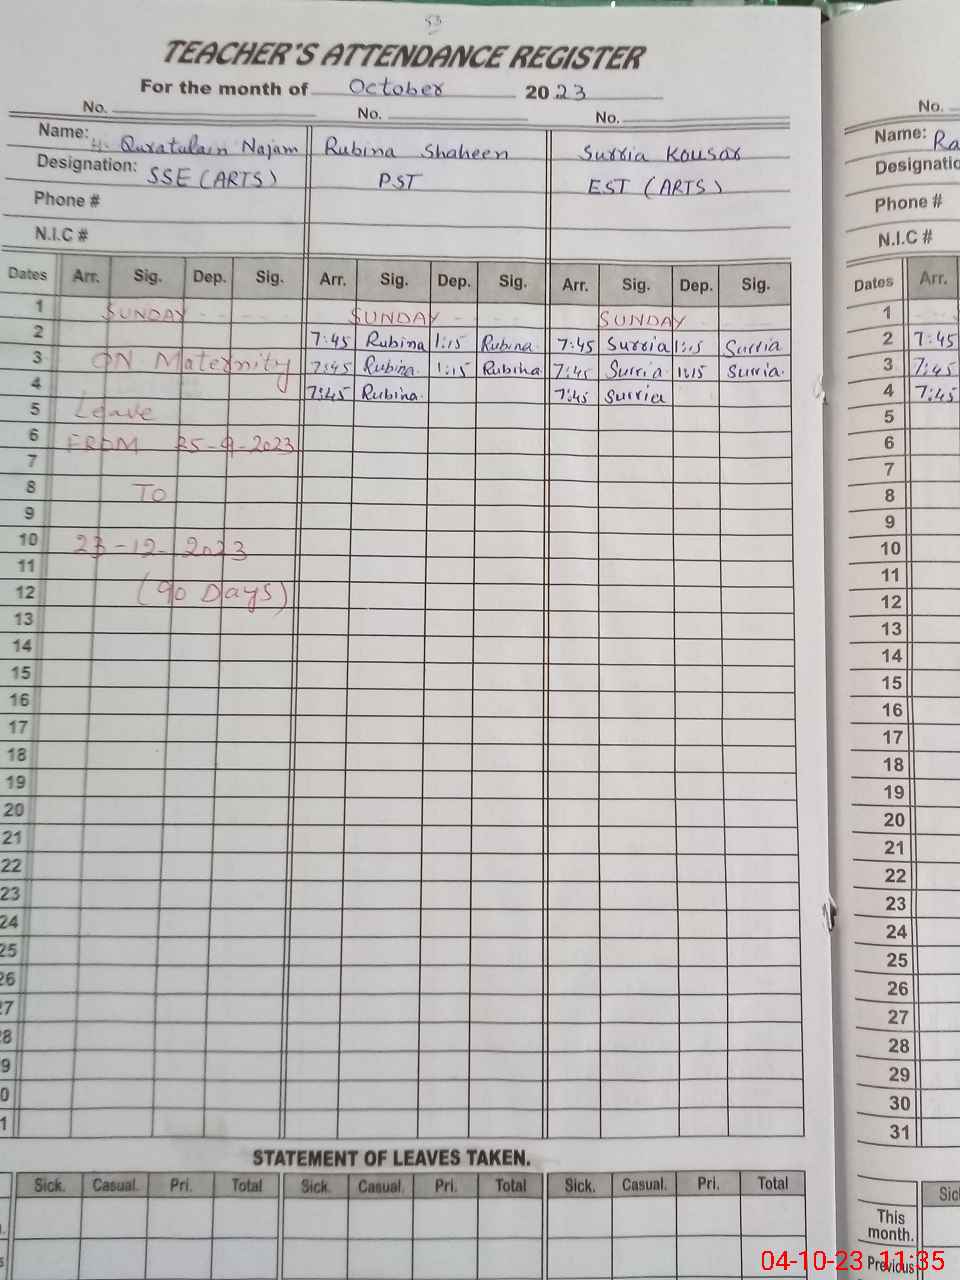 53
TEACHER'S ATTENDANCE REGISTER
For the month of October 2023
No. No. No.
Name: Quratulain Najam Rubina Shaheen Surria Kousar
Designation: SSE (ARTS) PST EST (ARTS)
Phone #
N.I.C #
Dates Arr. Sig. Dep. Sig. Arr. Sig. Dep. Sig. Arr. Sig. Dep. Sig.
1 SUNDAY SUNDAY SUNDAY
2 7:45 Rubina 1:15 Rubina 7:45 Surria 1:15 Surria
3 ON Maternity 7:45 Rubina 1:15 Rubina 7:45 Surria 1:15 Surria
4 7:45 Rubina 7:45 Surria
5 Leave
6 FROM 25-9-2023
7
8 TO
9
10 23-12-2023
11
12 (90 Days)
13
14
15
16
17
18
19
20
21
22
23
24
25
26
27
8
9
0
1
STATEMENT OF LEAVES TAKEN.
Sick. Casual. Pri. Total Sick. Casual. Pri. Total Sick. Casual. Pri. Total
No.
Name: Ra
Designatio
Phone #
N.I.C #
Dates Arr.
1
2 7:45
3 7:45
4 7:45
5
6
7
8
9
10
11
12
13
14
15
16
17
18
19
20
21
22
23
24
25
26
27
28
29
30
31
Sic
This
month.
Previous
04-10-23 11:35